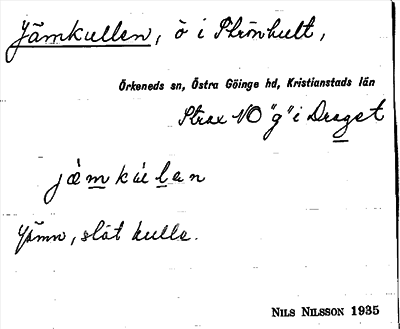 Jämkullen, ö i Strönhult,
Örkeneds sn, Östra Göinge hd, Kristianstads län
Strax NO "g" i Draget
jàmkúlan
Jämn, slät kulle.
NILS NILSSON 1935